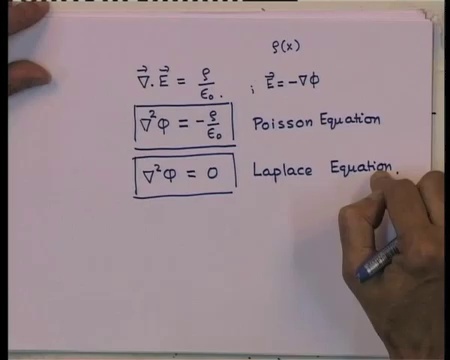 ρ(x)
∇⃗.E⃗ = ρ/ε₀. ; E⃗ = -∇φ
∇²φ = -ρ/ε₀ Poisson Equation
∇²φ = 0 Laplace Equation.